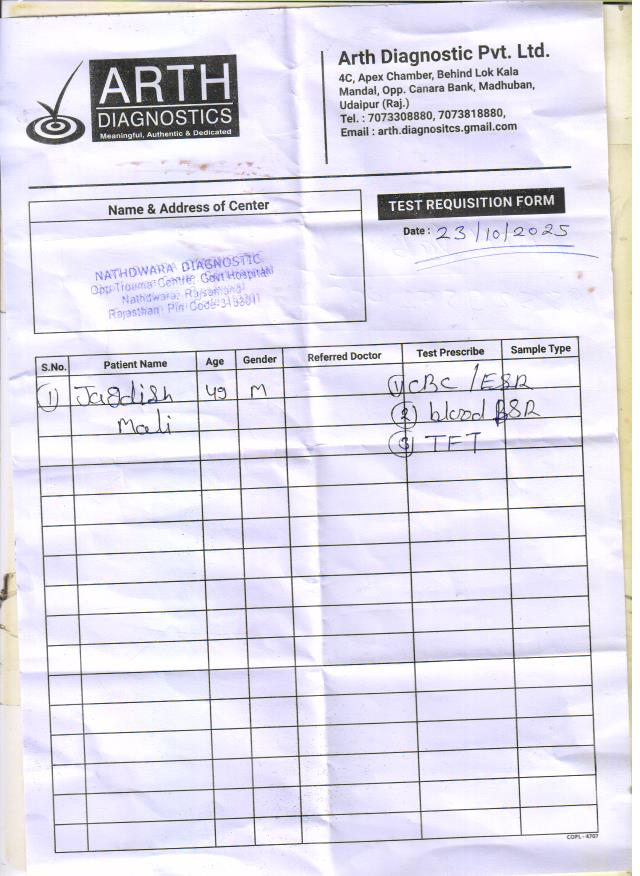 ARTH
DIAGNOSTICS
Meaningful, Authentic & Dedicated
Arth Diagnostic Pvt. Ltd.
4C, Apex Chamber, Behind Lok Kala
Mandal, Opp. Canara Bank, Madhuban,
Udaipur (Raj.)
Tel. : 7073308880, 7073818880,
Email : arth.diagnositcs.gmail.com
Name & Address of Center
TEST REQUISITION FORM
Date : 23/10/2025
NATHDWARA DIAGNOSTIC
Opp. Trauma Centre, Govt Hospital
Nathdwara, Rajsamand
Rajasthan Pin Code
S.No. Patient Name Age Gender Referred Doctor Test Prescribe Sample Type
1 Jagdish 49 M 1 CBC / ESR
Mali 2 blood
3 TFT
COPL - 4707